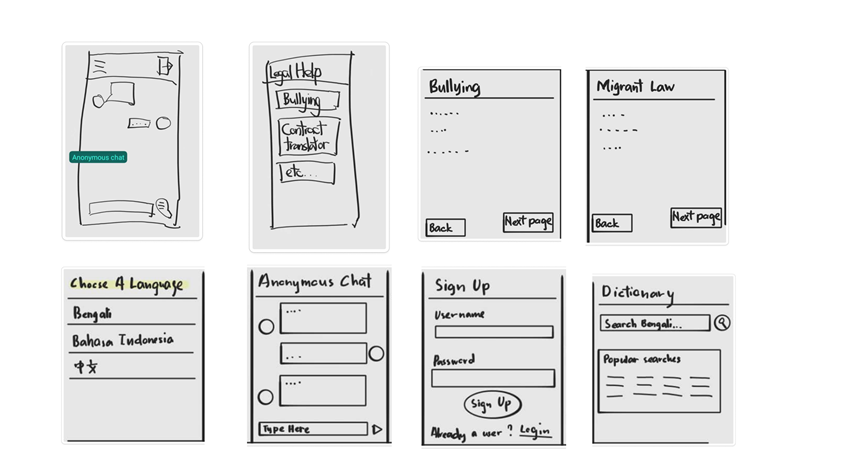 Anonymous chat
Legal Help
Bullying
Contract
translator
etc...
Bullying
Back
Next page
Migrant Law
Back
Next page
Choose A Language
Bengali
Bahasa Indonesia
中文
Anonymous Chat
Type Here
Sign Up
Username
Password
Sign Up
Already a user? Login
Dictionary
Search Bengali...
Popular searches